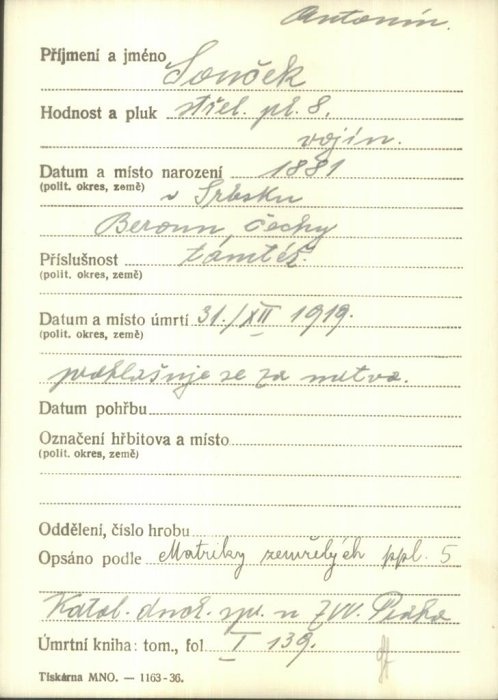 Antonín.
Příjmení a jméno Souček
Hodnost a pluk střel. pl. 8.
vojín.
Datum a místo narození 1881
(polit. okres, země) v Srbsku
Beroun, Čechy
Příslušnost tamtéž.
(polit. okres, země)
Datum a místo úmrtí 31./XII 1919.
(polit. okres, země)
prohlašuje se za mrtva.
Datum pohřbu
Označení hřbitova a místo
(polit. okres, země)
Oddělení, číslo hrobu
Opsáno podle Matriky zemřelých ppl. 5
Katol. duch. spr. u ZVV. Praha
Úmrtní kniha: tom., fol I 139.
Tiskárna MNO. — 1163-36.